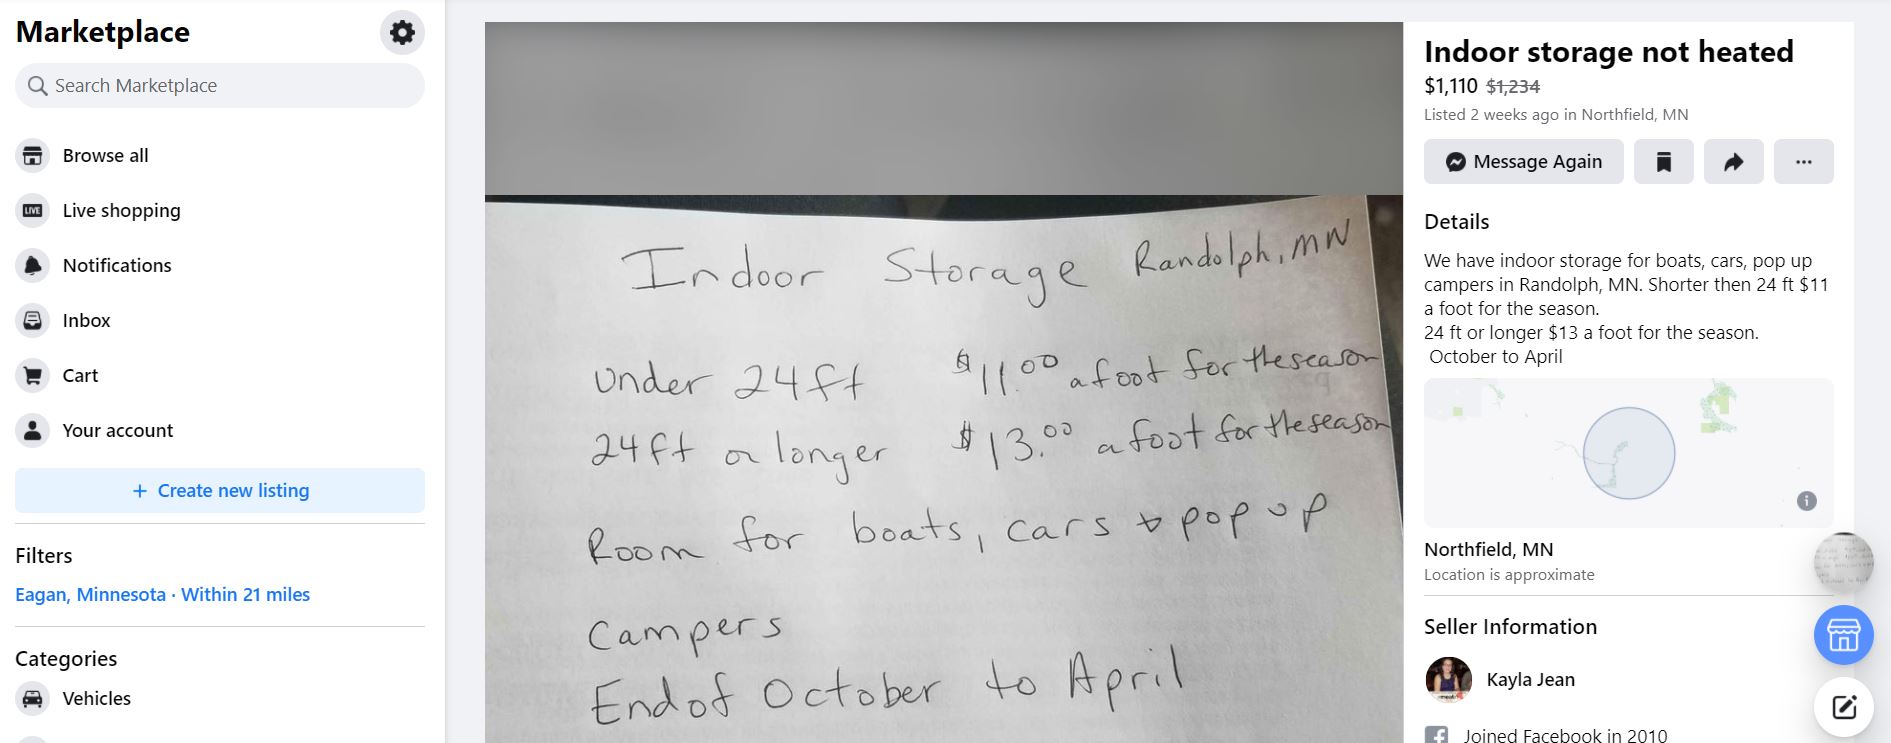 Marketplace
Search Marketplace
Browse all
LIVE
Live shopping
Notifications
Inbox
Cart
Your account
+ Create new listing
Filters
Eagan, Minnesota · Within 21 miles
Categories
Vehicles
Indoor Storage Randolph, MN
Under 24ft $11.00 a foot for the season
24ft or longer $13.00 a foot for the season
Room for boats, cars & pop up
Campers
End of October to April
Indoor storage not heated
$1,110 $1,234
Listed 2 weeks ago in Northfield, MN
Message Again
Details
We have indoor storage for boats, cars, pop up
campers in Randolph, MN. Shorter then 24 ft $11
a foot for the season.
24 ft or longer $13 a foot for the season.
October to April
Northfield, MN
Location is approximate
Seller Information
Kayla Jean
Joined Facebook in 2010